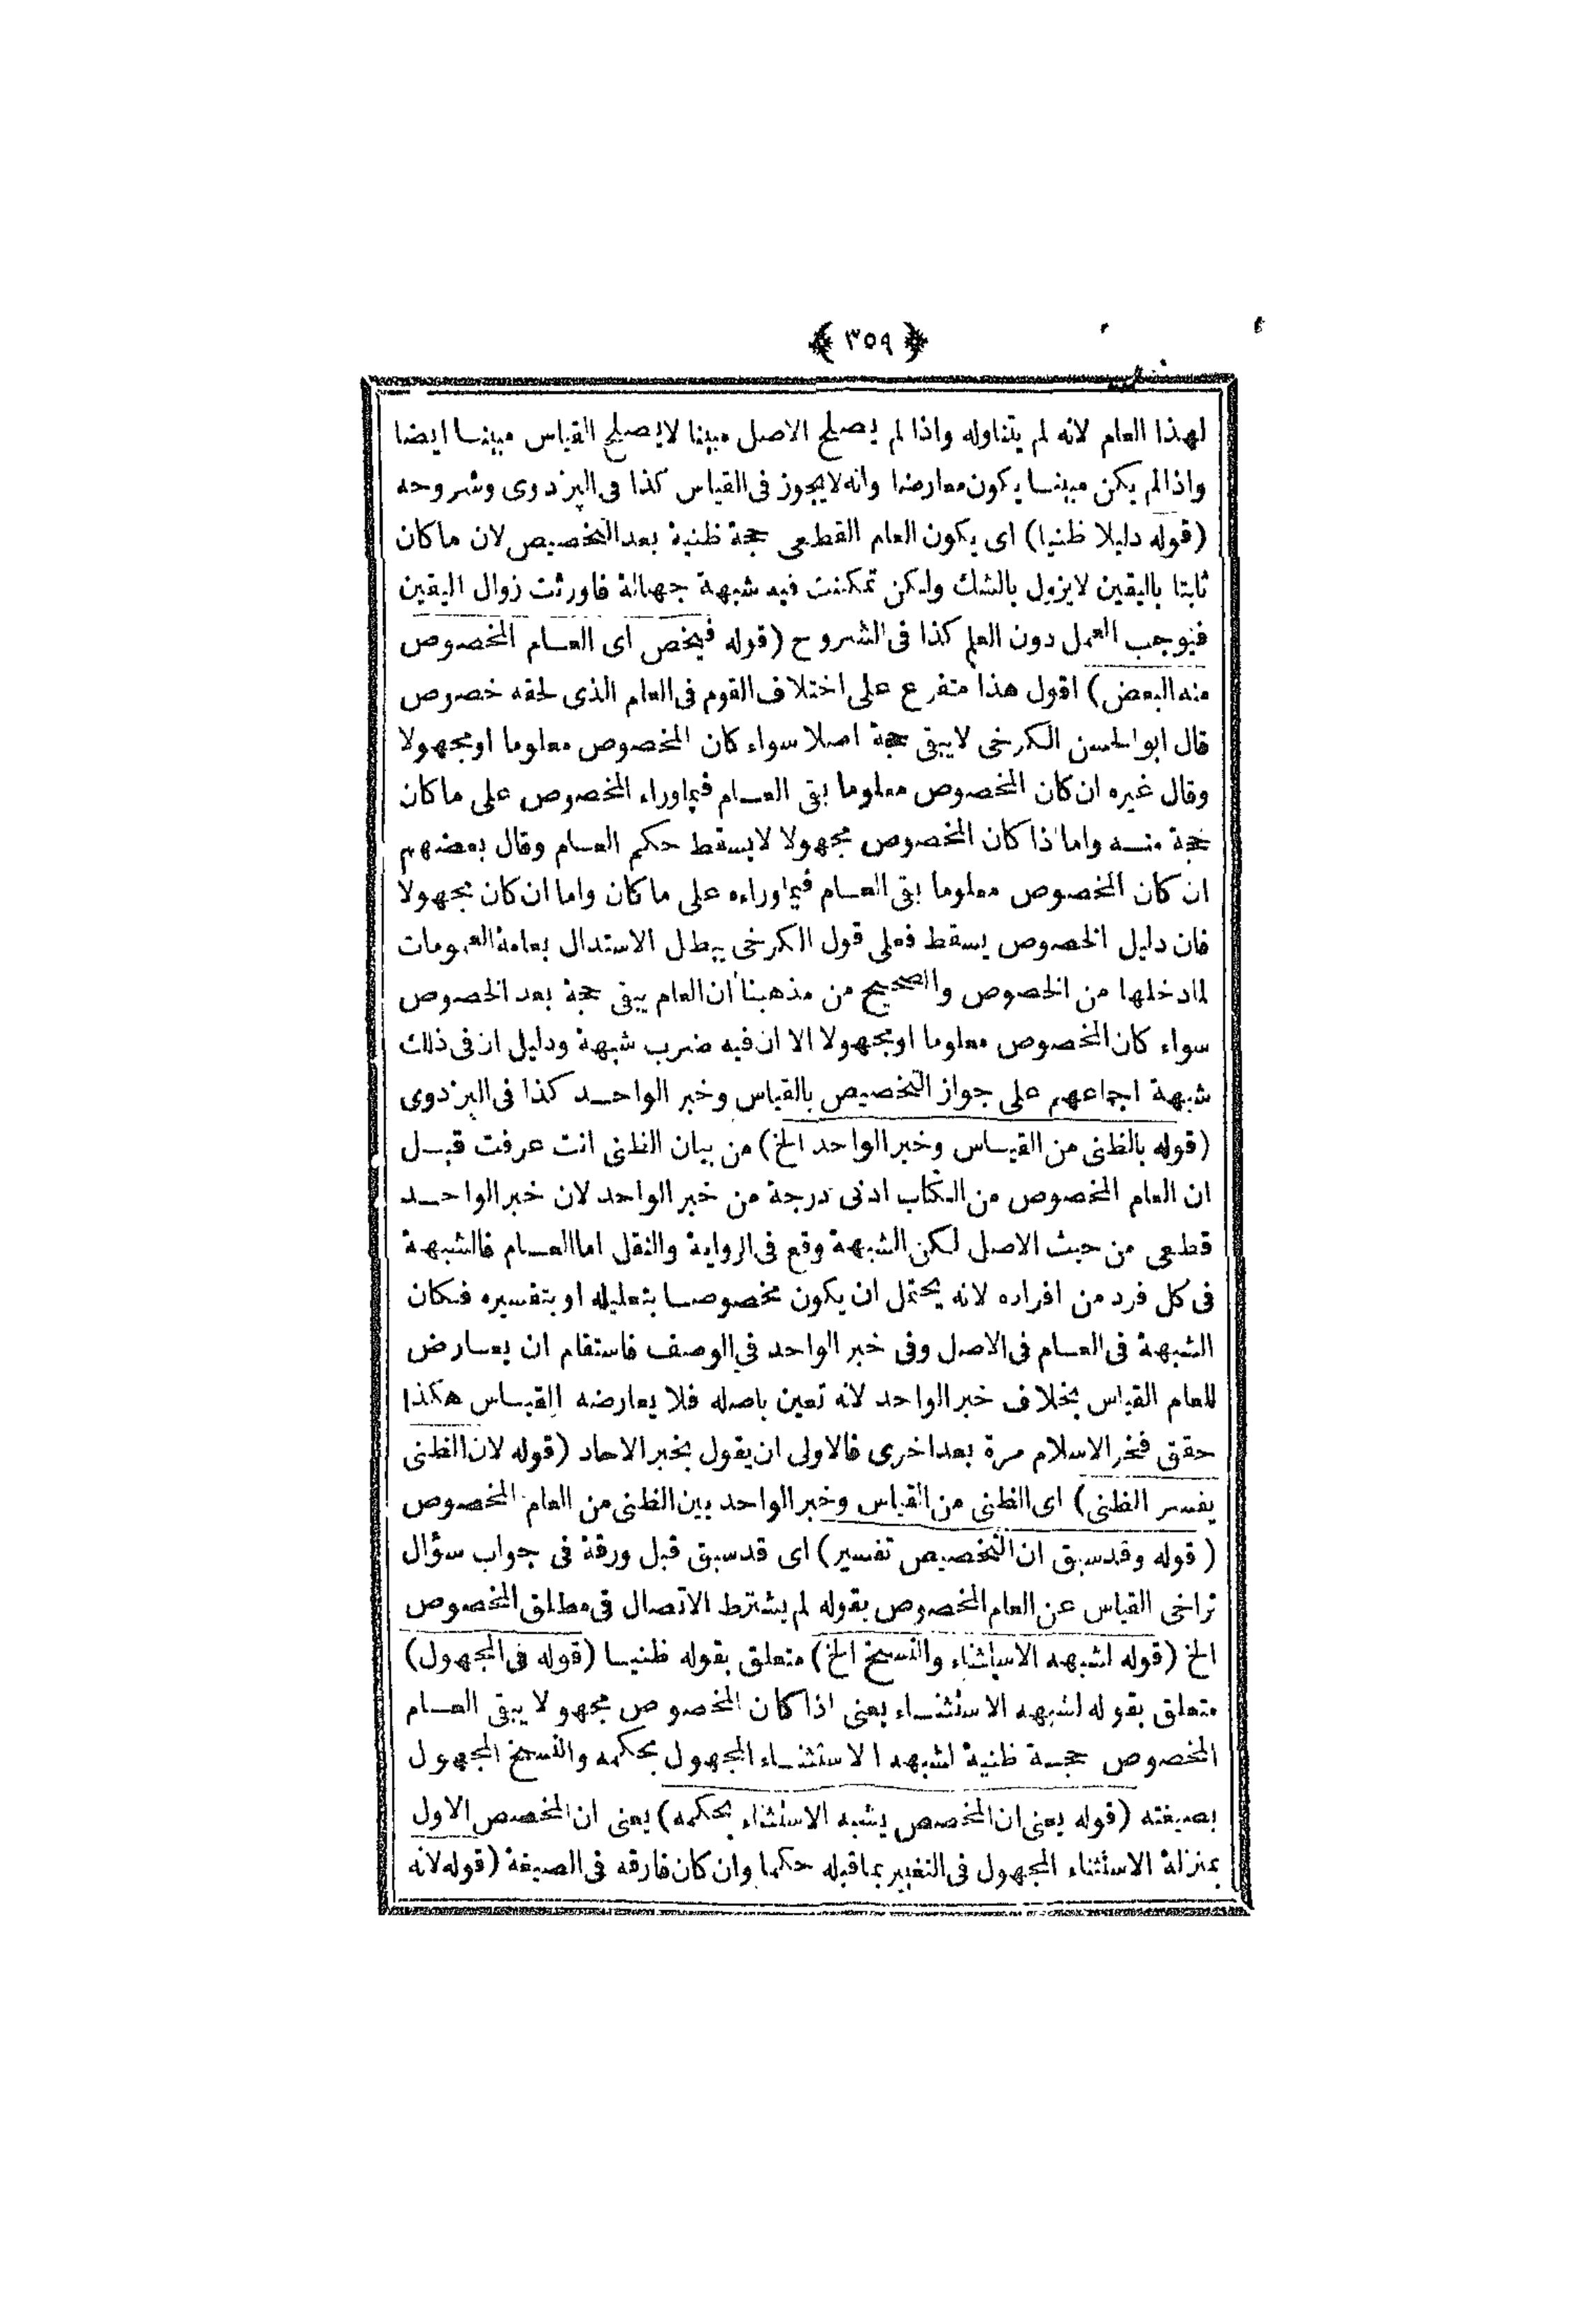 ﴿ ٣٥٩ ﴾
لهذا العام لانه لم يتناوله واذا لم يصلح الاصل مبينا لايصلح القياس مبينا ايضا
واذالم يكن مبينا يكون معارضا وانه لايجوز فى القياس كذا فى البزدوى وشروحه
(قوله دليلا ظنيا) اى يكون العام القطعى حجة ظنية بعد التخصيص لان ماكان
ثابتا باليقين لايزول بالشك ولكن تمكنت فيه شبهة جهالة فاورثت زوال اليقين
فيوجب العمل دون العلم كذا فى الشروح (قوله فيخص اى العام المخصوص
منه البعض) اقول هذا متفرع على اختلاف القوم فى العام الذى لحقه خصوص
قال ابوالحسن الكرخى لايبقى حجة اصلا سواء كان المخصوص معلوما اومجهولا
وقال غيره ان كان المخصوص معلوما بقى العام فيماوراء المخصوص على ماكان
حجة منه واما اذا كان المخصوص مجهولا لايسقط حكم العام وقال بعضهم
ان كان المخصوص معلوما بقى العام فيماوراءه على ماكان واما ان كان مجهولا
فان دليل الخصوص يسقط فعلى قول الكرخى يبطل الاستدال بعامة العمومات
لمادخلها من الخصوص والصحيح من مذهبنا ان العام يبقى حجة بعد الخصوص
سواء كان المخصوص معلوما اومجهولا الا ان فيه ضرب شبهة ودليل ان فى ذلك
شبهة اجماعهم على جواز التخصيص بالقياس وخبر الواحد كذا فى البزدوى
(قوله بالظنى من القياس وخبر الواحد الخ) من بيان الظنى انت عرفت قبل
ان العام المخصوص من الكتاب ادنى درجة من خبر الواحد لان خبر الواحد
قطعى من حيث الاصل لكن الشبهة وقع فى الرواية والنقل اما العام فالشبهة
فى كل فرد من افراده لانه يحتمل ان يكون مخصوصا بتعليله او بتفسيره فكان
الشبهة فى العام فى الاصل وفى خبر الواحد فى الوصف فاستقام ان يعارض
للعام القياس بخلاف خبر الواحد لانه تعين باصله فلا يعارضه القياس هكذا
حقق فخر الاسلام مرة بعد اخرى فالاولى ان يقول بخبر الاحاد (قوله لان الظنى
يفسر الظنى) اى الظنى من القياس وخبر الواحد بين الظنى من العام المخصوص
(قوله وقدسبق ان التخصيص تفسير) اى قدسبق قبل ورقة فى جواب سؤال
تراخى القياس عن العام المخصوص بقوله لم يشترط الاتصال فى مطلق المخصوص
الخ (قوله لشبهه الاستثناء والنسخ الخ) متعلق بقوله ظنيا (قوله فى المجهول)
متعلق بقوله لشبهه الاستثناء يعنى اذا كان المخصوص مجهولا يبقى العام
المخصوص حجة ظنية لشبهه الاستثناء المجهول بحكمه والنسخ المجهول
بصيغته (قوله يعنى ان المخصص يشبه الاستثناء بحكمه) يعنى ان المخصص الاول
بمنزلة الاستثناء المجهول فى التغيير بماقبله حكما وان كان فارقه فى الصيغة (قوله لانه